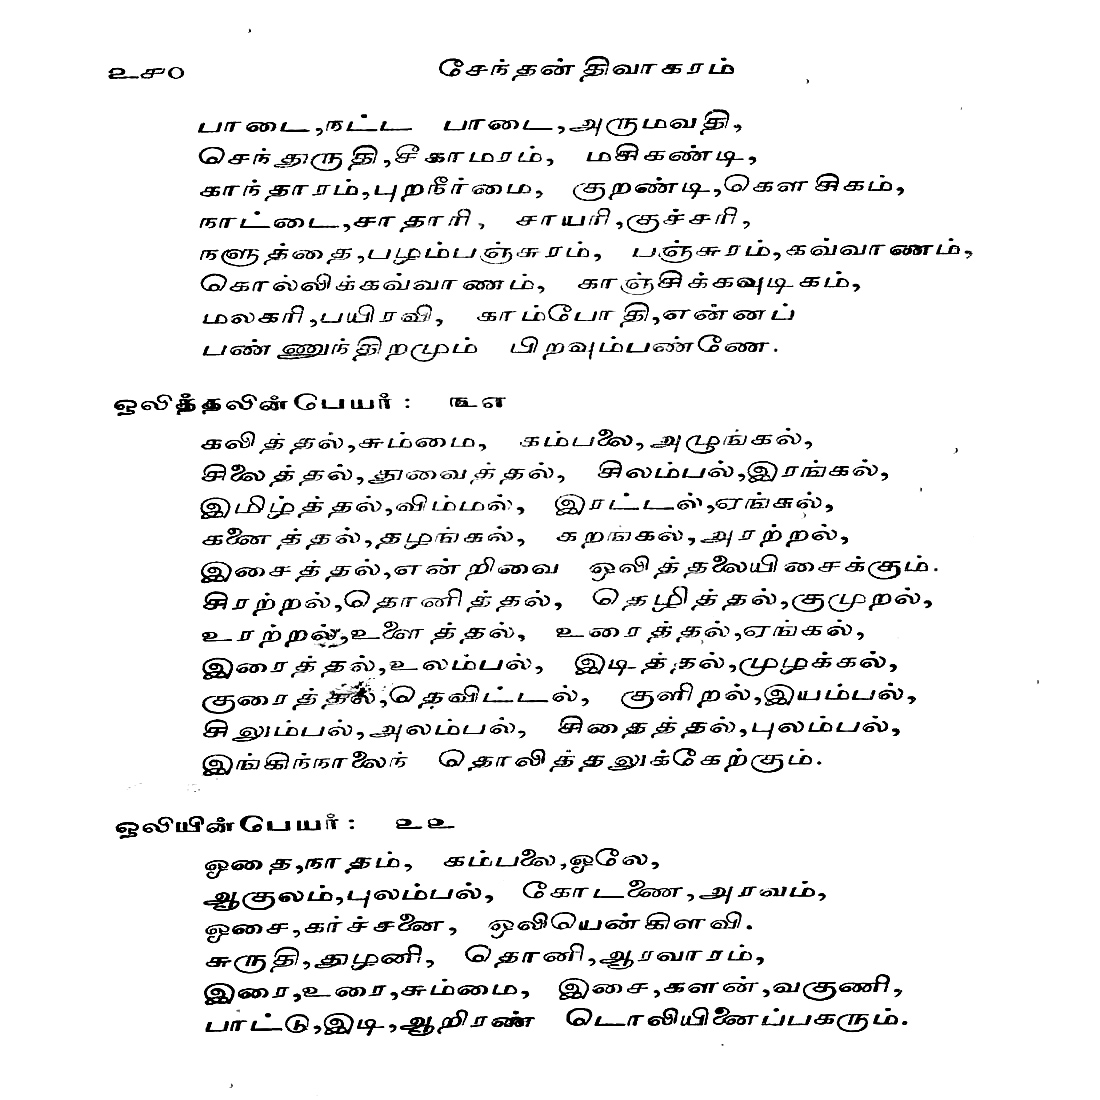 ௨௯0 சேந்தன் திவாகரம்
பாடை,நட்ட பாடை,அருமவதி,
செந்துருதி,சீகாமரம், மசிகண்டி,
காந்தாரம்,புறநீர்மை, குறண்டி,கௌசிகம்,
நாட்டை,சாதாரி, சாயரி,குச்சரி,
நளுத்தை,பழம்பஞ்சுரம், பஞ்சுரம்,கவ்வாணம்,
கொல்லிக்கவ்வாணம், காஞ்சிக்கவுடிகம்,
மலகரி,பயிரவி, காம்போதி,என்னப்
பண்ணுந்திறமும் பிறவும்பண்ணே.
ஒலித்தலின்பேயர்: ௩௭
கலித்தல்,சும்மை, கம்பலை,அழுங்கல்,
சிலைத்தல்,துவைத்தல், சிலம்பல்,இரங்கல்,
இமிழ்த்தல்,விம்மல், இரட்டல்,ஏங்கல்,
கனைத்தல்,தழங்கல், கறங்கல்,அரற்றல்,
இசைத்தல்,என்றிவை ஒலித்தலையிசைக்கும்.
சிரற்றல்,தொணித்தல், தெழித்தல்,குமுறல்,
உரற்றல்,உளைத்தல், உரைத்தல்,ஏங்கல்,
இரைத்தல்,உலம்பல், இடித்தல்,முழக்கல்,
குரைத்தல்,தெவிட்டல், குளிறல்,இயம்பல்,
சிலும்பல்,அலம்பல், சிதைத்தல்,புலம்பல்,
இங்கிந்நாலைந் தொலித்தலுக்கேற்கும்.
ஒலியின்பேயர்: ௨௨
ஓதை,நாதம், கம்பலை,ஓலே,
ஆகுலம்,புலம்பல், கோடணை,அரவம்,
ஓசை,கர்ச்சனை, ஒலியென்கிளவி.
சுருதி,துழனி, தொனி,ஆரவாரம்,
இரை,உரை,சும்மை, இசை,களன்,வகுணி,
பாட்டு,இடி,ஆறிரண் டொலியினைப்பகரும்.